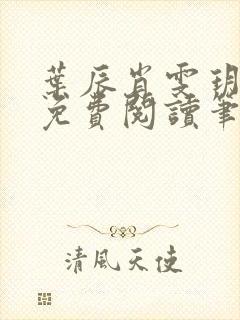 葉辰肖雯玥
免費閱讀筆
清風天使